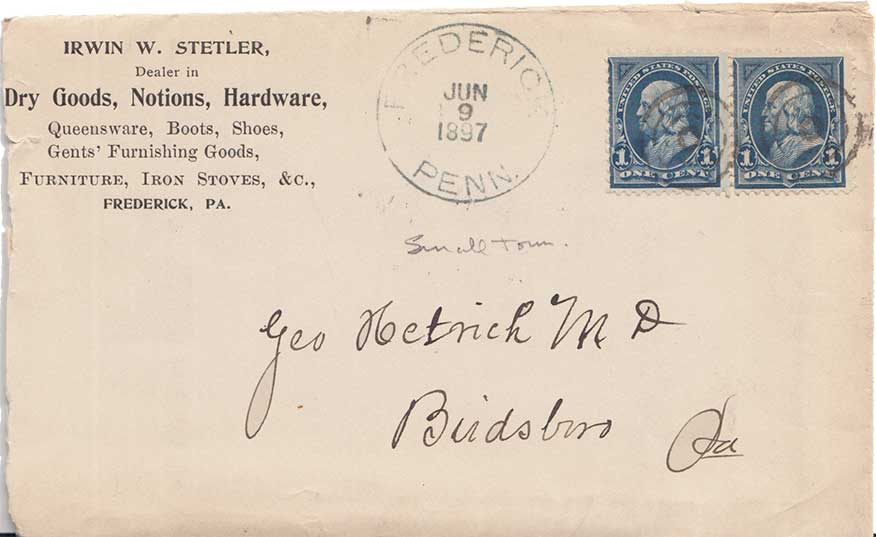 IRWIN W. STETLER,
Dealer in
Dry Goods, Notions, Hardware,
Queensware, Boots, Shoes,
Gents' Furnishing Goods,
FURNITURE, IRON STOVES, &C.,
FREDERICK, PA.
FREDERICK
JUN
9
1897
PENN.
UNITED STATES POSTAGE
1 1
ONE CENT
UNITED STATES POSTAGE
1 1
ONE CENT
Small Town.
Geo Hetrich M D
Birdsboro Pa